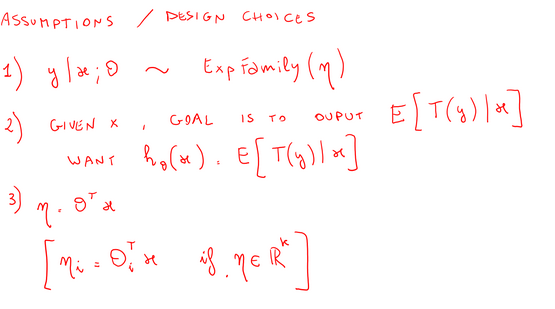 ASSUMPTIONS / DESIGN CHOICES
1) y | x ; θ ~ Exp Family (η)
2) GIVEN x , GOAL IS TO OUPUT E[T(y) | x]
WANT h_θ(x) = E[T(y) | x]
3) η = θ^T x
[η_i = θ_i^T x if η ∈ ℝ^k]